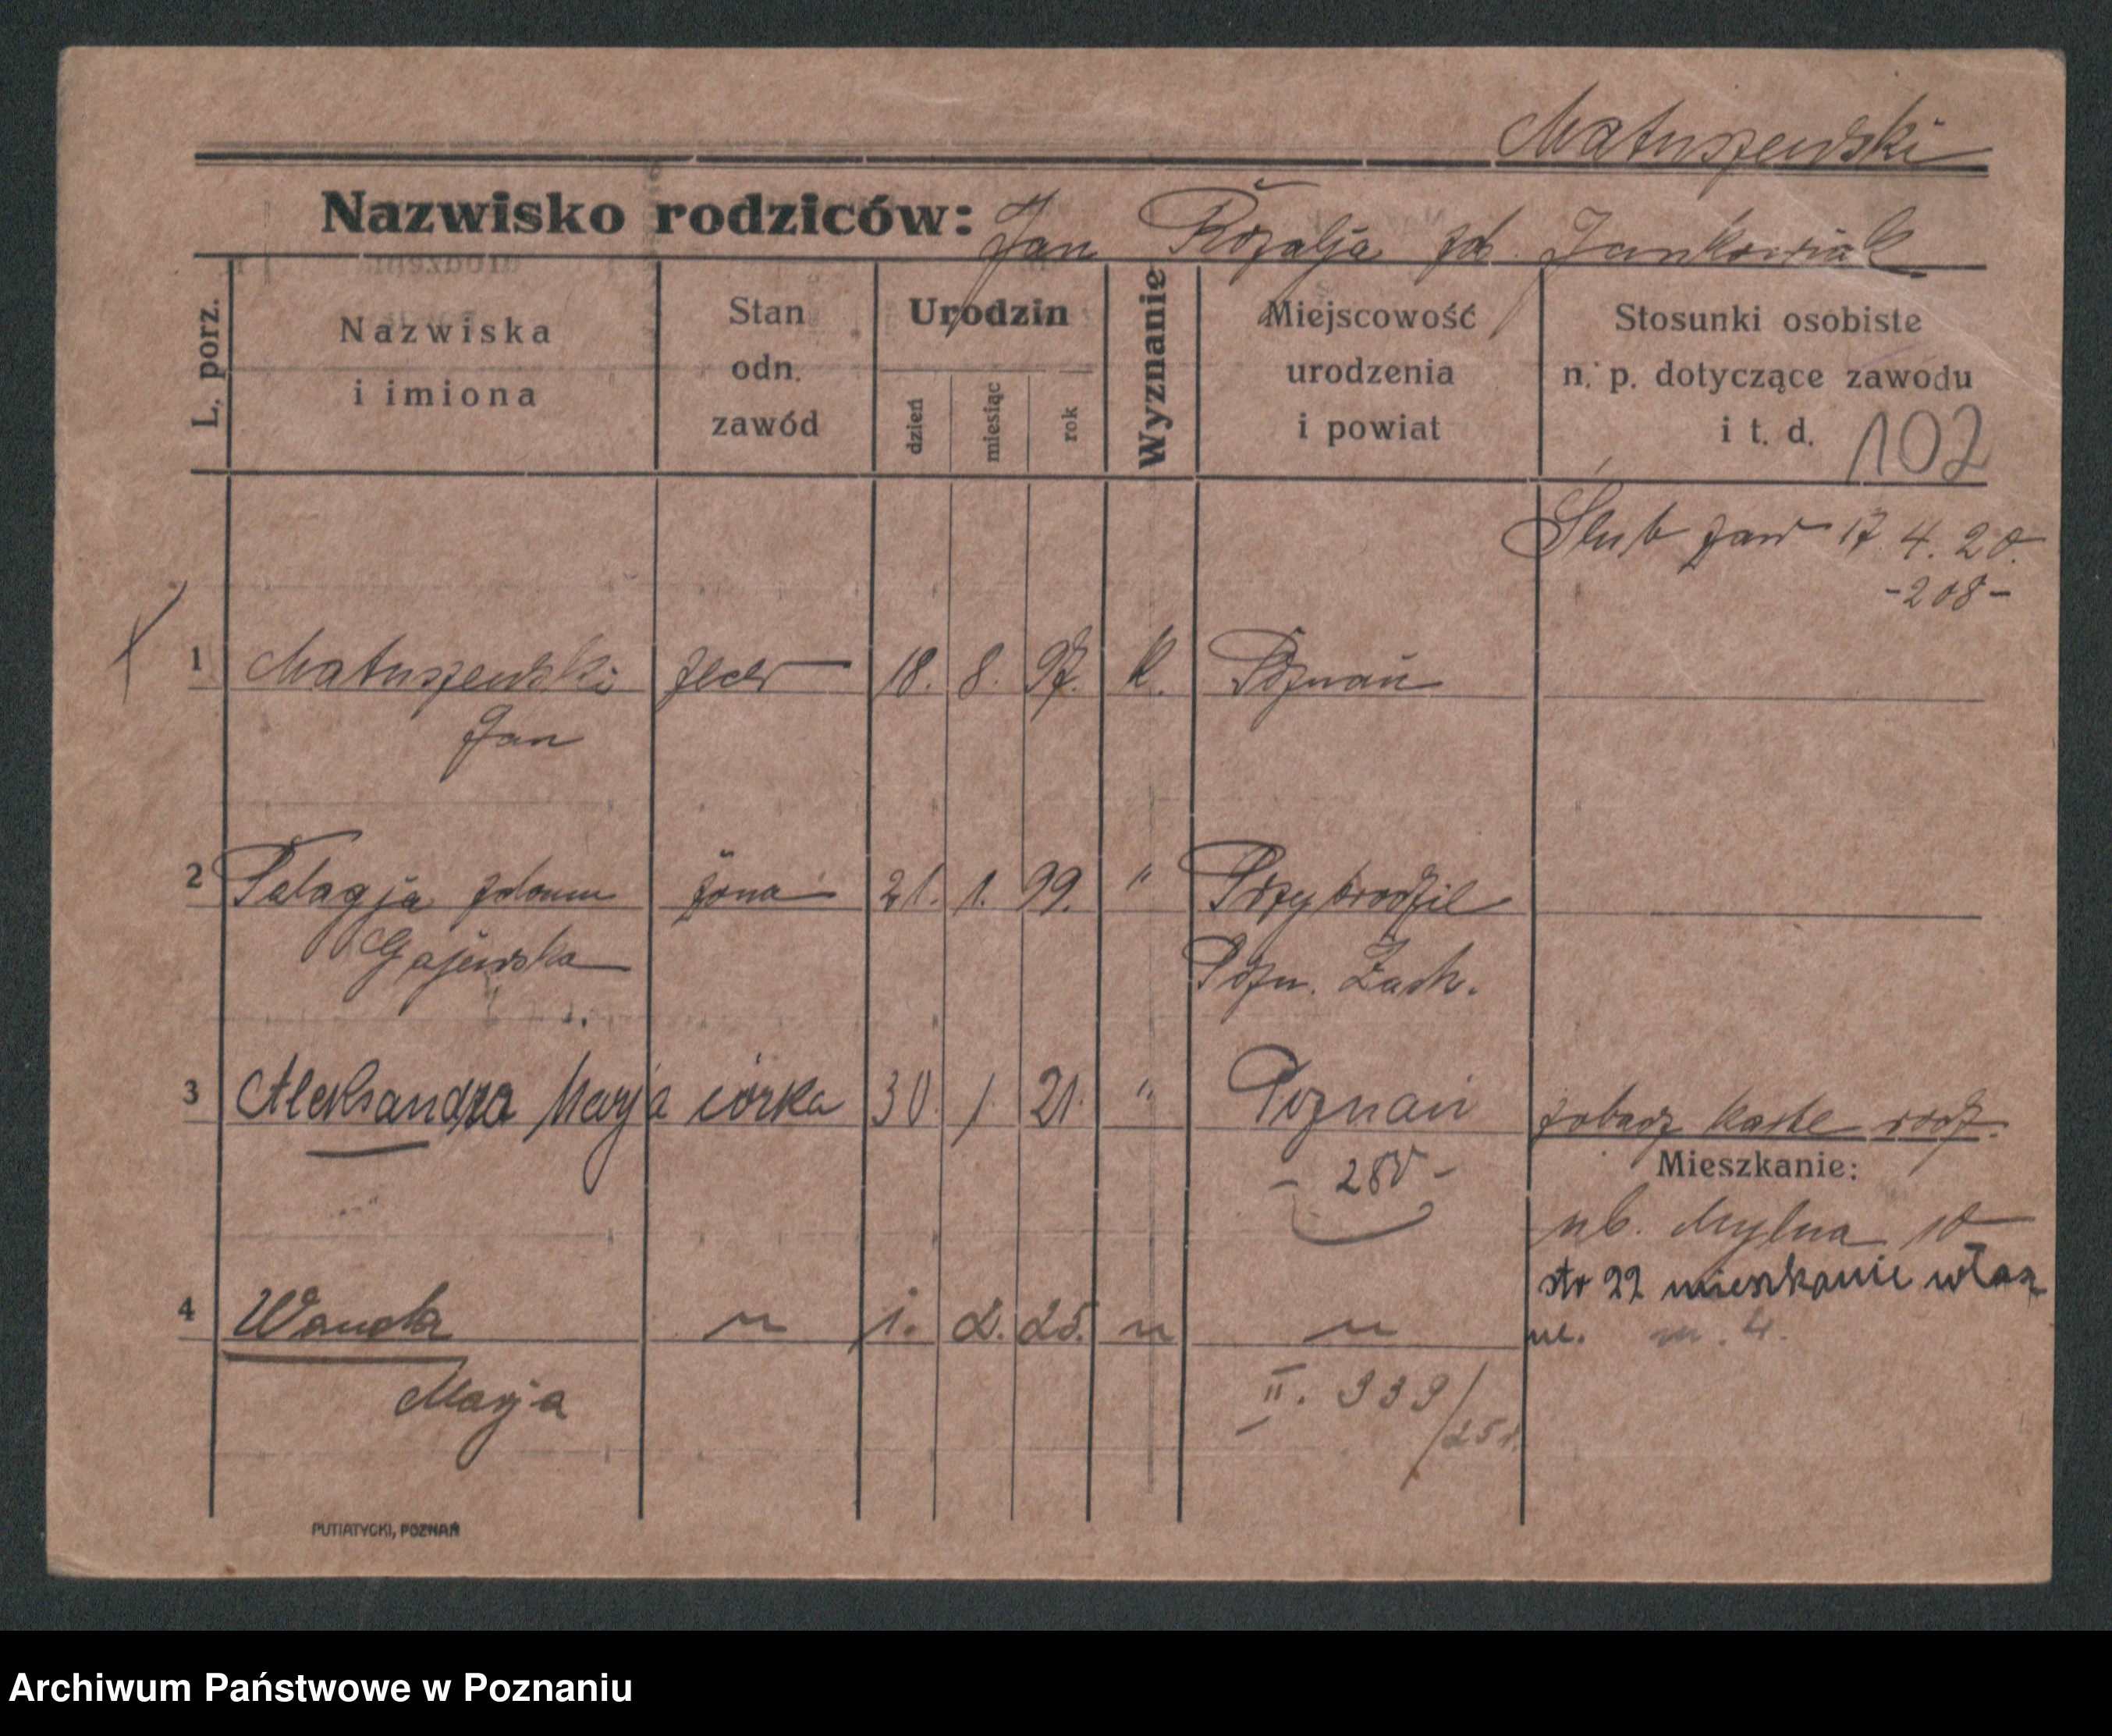 Matuszewski
Nazwisko rodziców: Jan Rozalja zd. Jankowiak
L. porz.
Nazwiska
i imiona
Stan
odn.
zawód
Urodzin
dzień
miesiąc
rok
Wyznanie
Miejscowość
urodzenia
i powiat
Stosunki osobiste
n. p. dotyczące zawodu
i t. d.
102
Ślub zaw 17. 4. 20.
-208-
1 Matuszewski zecer 18. 8. 97. k. Poznań
Jan
2 Pelagja zdomu żona 21. 1. 99. " Przybrodzil
Gajewska Pozn. Zach.
3 Aleksandra Marja córka 30. 1. 21. " Poznań zobacz rodz.
- 280 -
Mieszkanie:
ub. Mylna 10
str 22 mieszkanie włas
ne. m. 4.
4 Wanda " 1. 2. 25. " "
Marja II. 339/25 r.
PUTIATYCKI, POZNAŃ
Archiwum Państwowe w Poznaniu